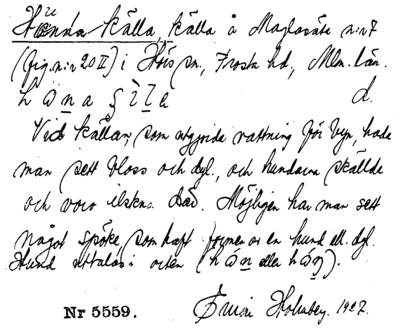 Hunna källa, källa å Maglasäte n:r 7
(fig. n:r 20 II) i Hörs sn, Frosta hd, Mlm. län.
d.
Vid källan, som utgjorde vattning för byn, hade
man sett bloss och dyl., och hundarna skällde
och voro ilskna där. Möjligen har man sett
något spöke, som haft formen av en hund ell. dyl.
Hund uttalas i orten (hɷn eller hɷŋ).
Nr 5559. Holmberg. 1927.